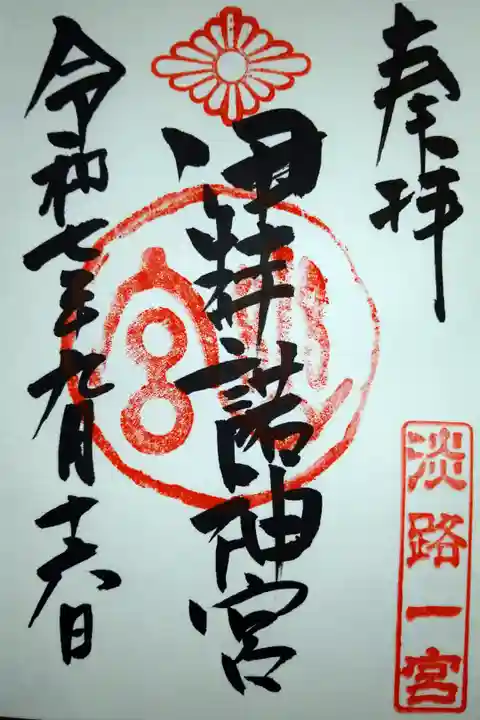 奉拝
淡路一宮
伊弉諾神宮
令和七年九月十六日